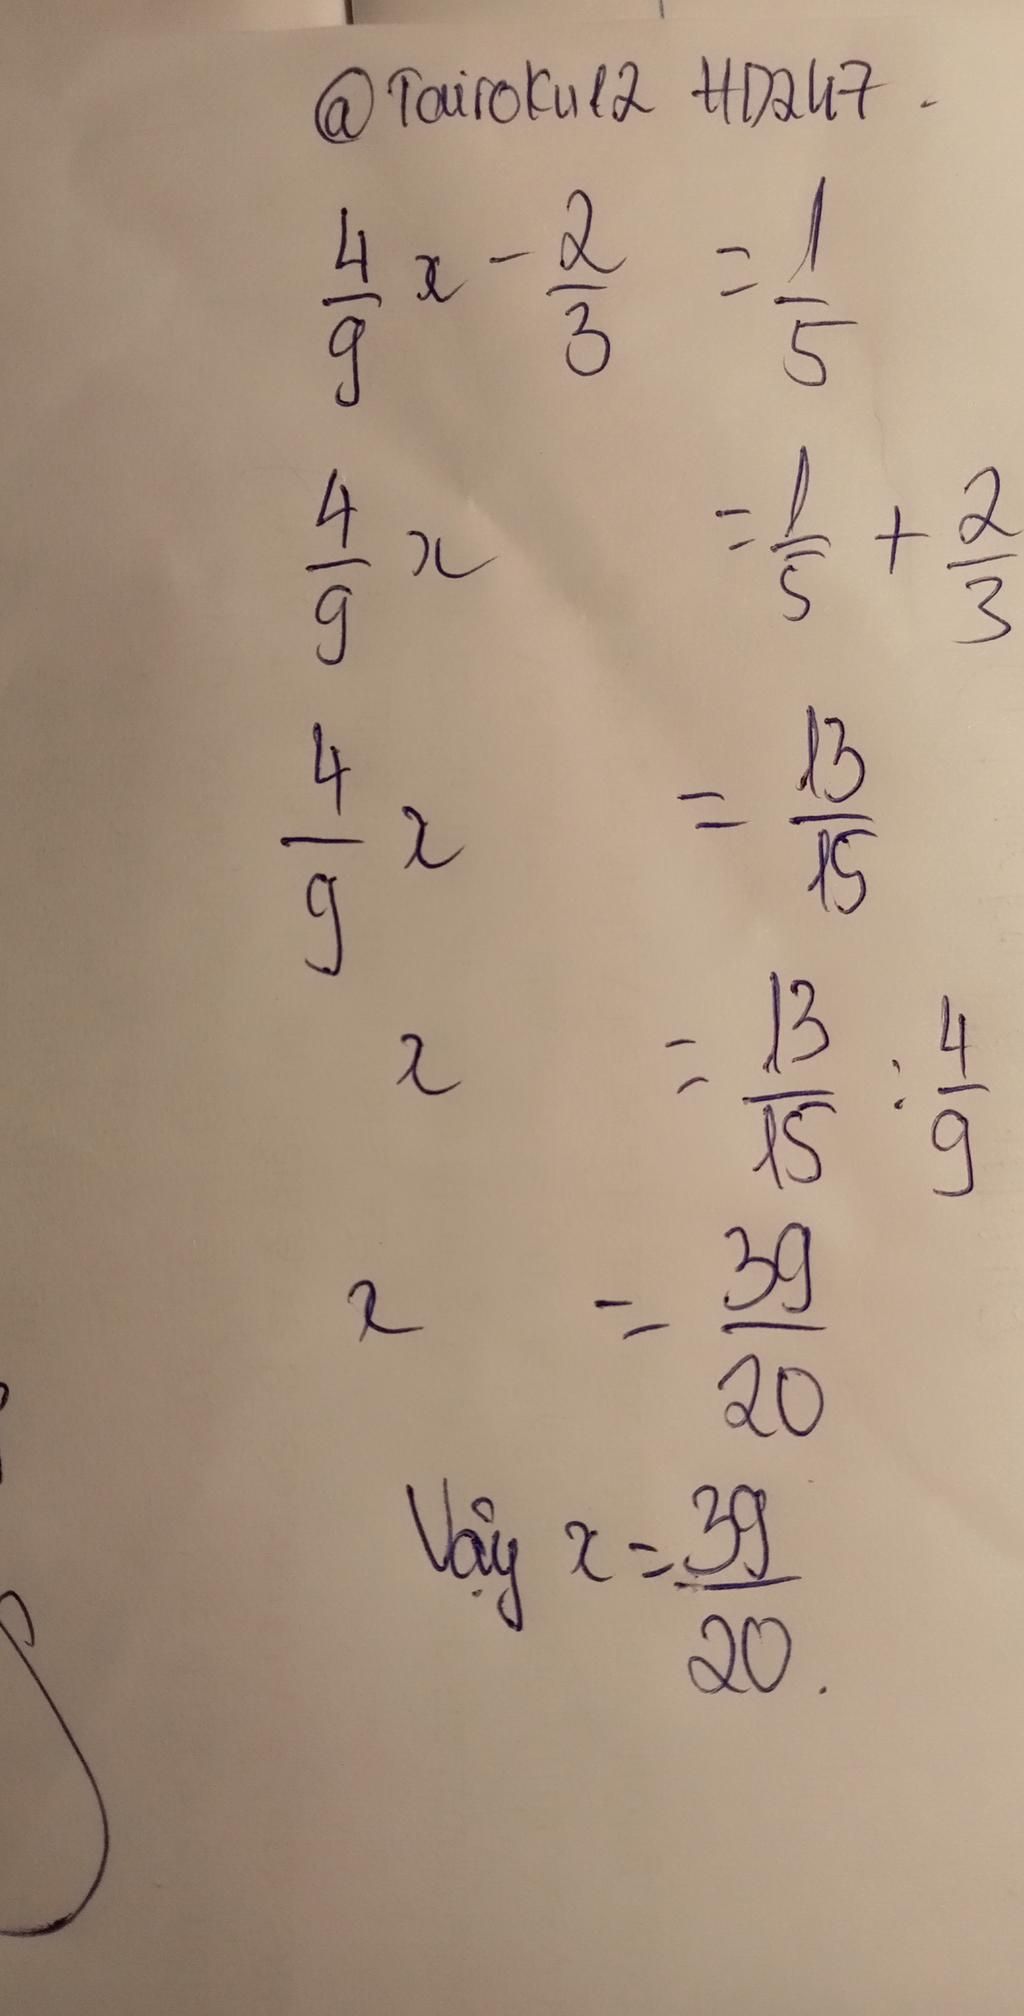 @Tairokul2 HD247.
4/9 x - 2/3 = 1/5
4/9 x = 1/5 + 2/3
4/9 x = 13/15
x = 13/15 : 4/9
x = 39/20
Vậy x = 39/20.